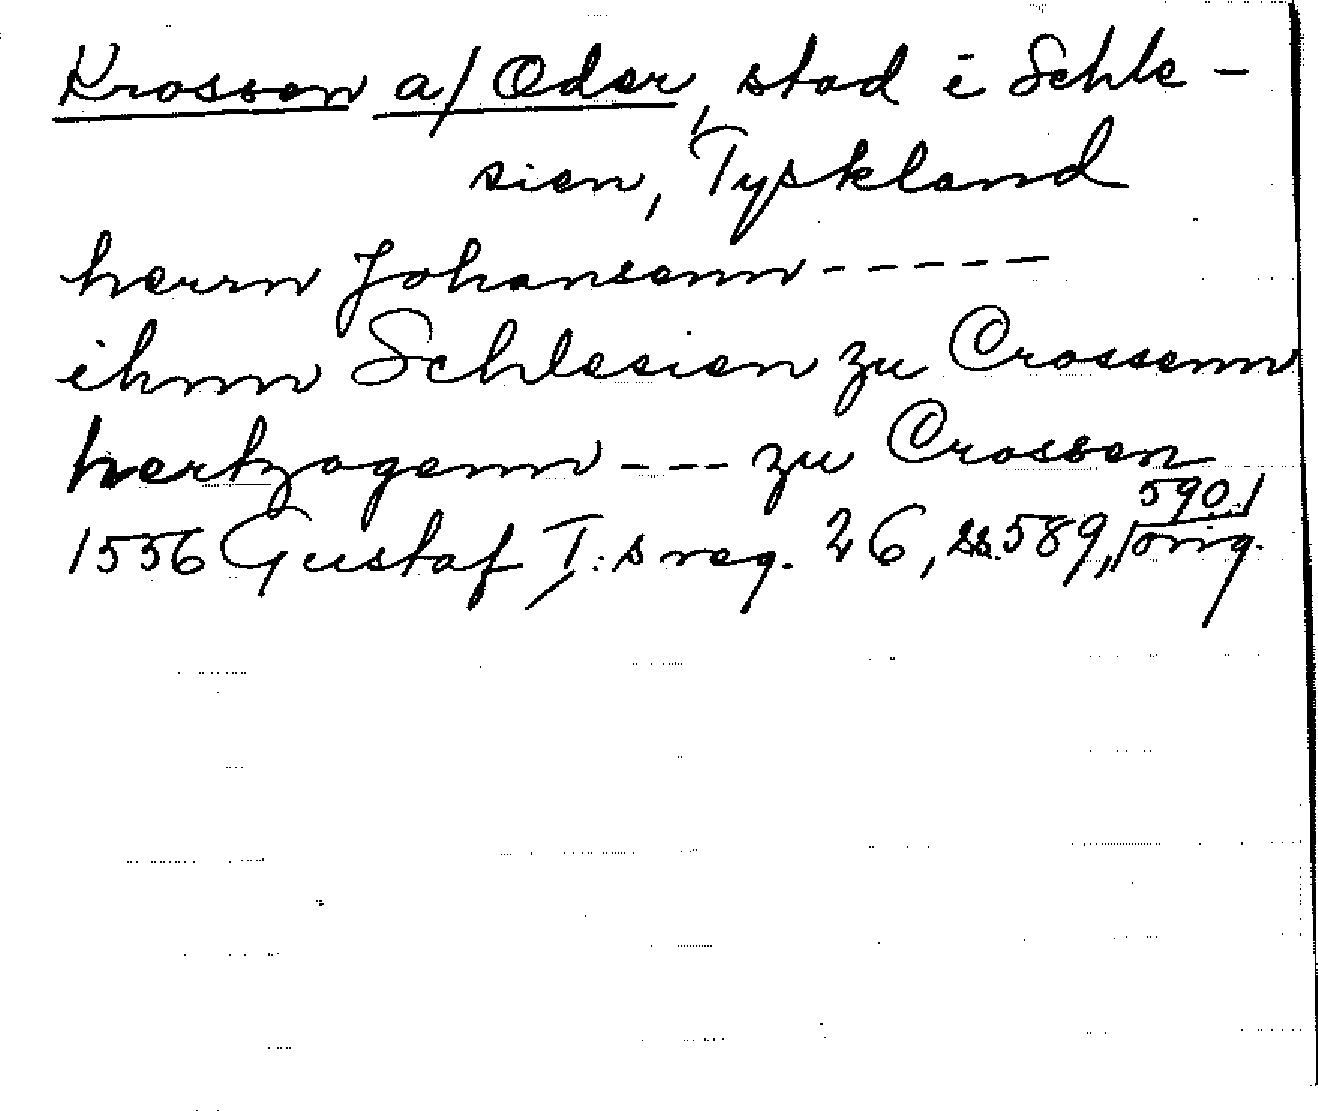 Krossen a/ Oder, stad i Schle-
sien, Tyskland
herrn Johansenn -----
ihnn Schlesien zu Crossenn
hertzogenn --- zu Crossen
590./
1556 Gustaf I:s reg. 26, ss. 589, /orig.